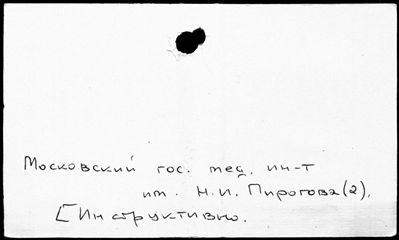 Московский гос. мед. ин-т
им. Н.И. Пирогова(2).
[Инструктивно.